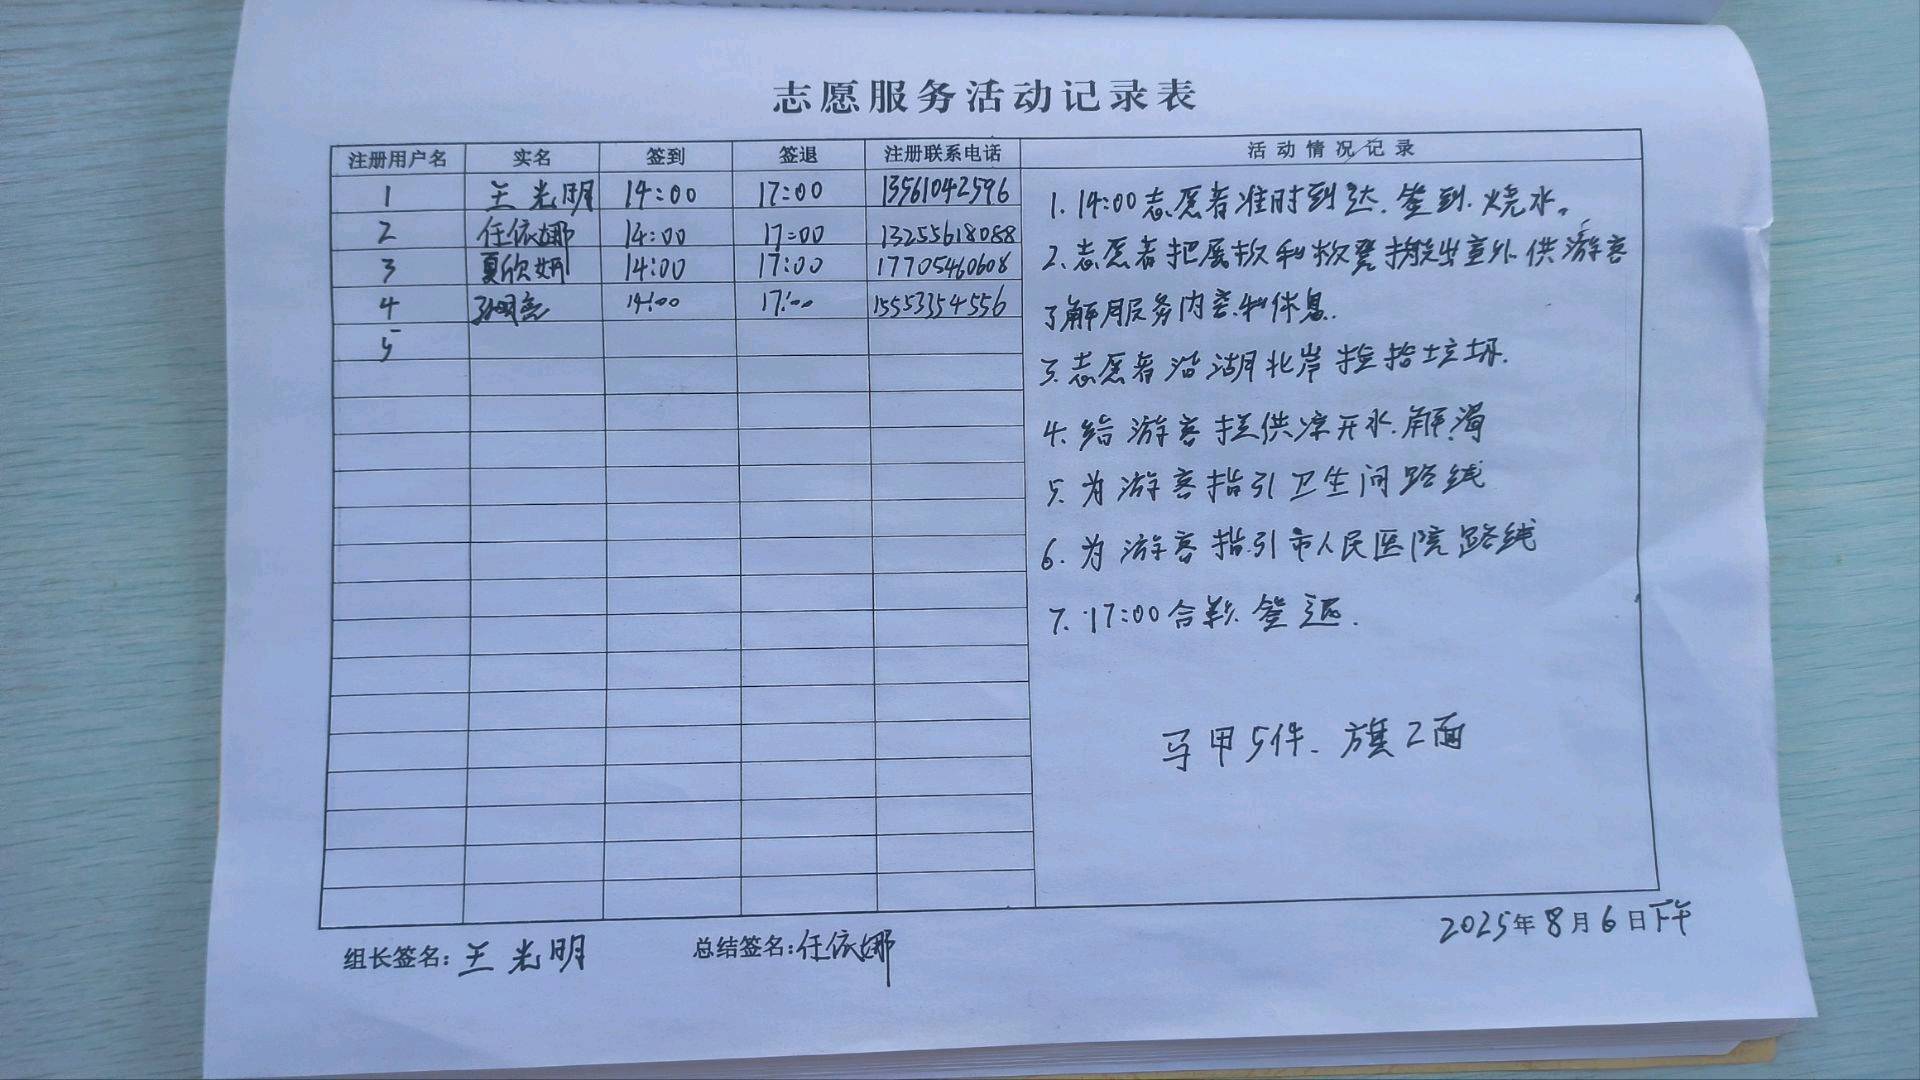 志愿服务活动记录表
注册用户名 实名 签到 签退 注册联系电话 活动情况记录
1 王光明 14:00 17:00 13561042596
2 任依娜 14:00 17:00 13255618088
3 夏欣妍 14:00 17:00 17705460608
4 14:00 17:00 15553354556
5
1. 14:00志愿者准时到达.签到.烧水。
2.志愿者把展板和板凳搬出室外供游客
了解服务内容和休息.
3.志愿者沿湖北岸捡拾垃圾.
4.给游客提供凉开水.解渴
5.为游客指引卫生间路线
6.为游客指引市人民医院路线
7.17:00合影.签退.
马甲5件、旗2面
组长签名:王光明 总结签名:任依娜 2025年8月6日下午